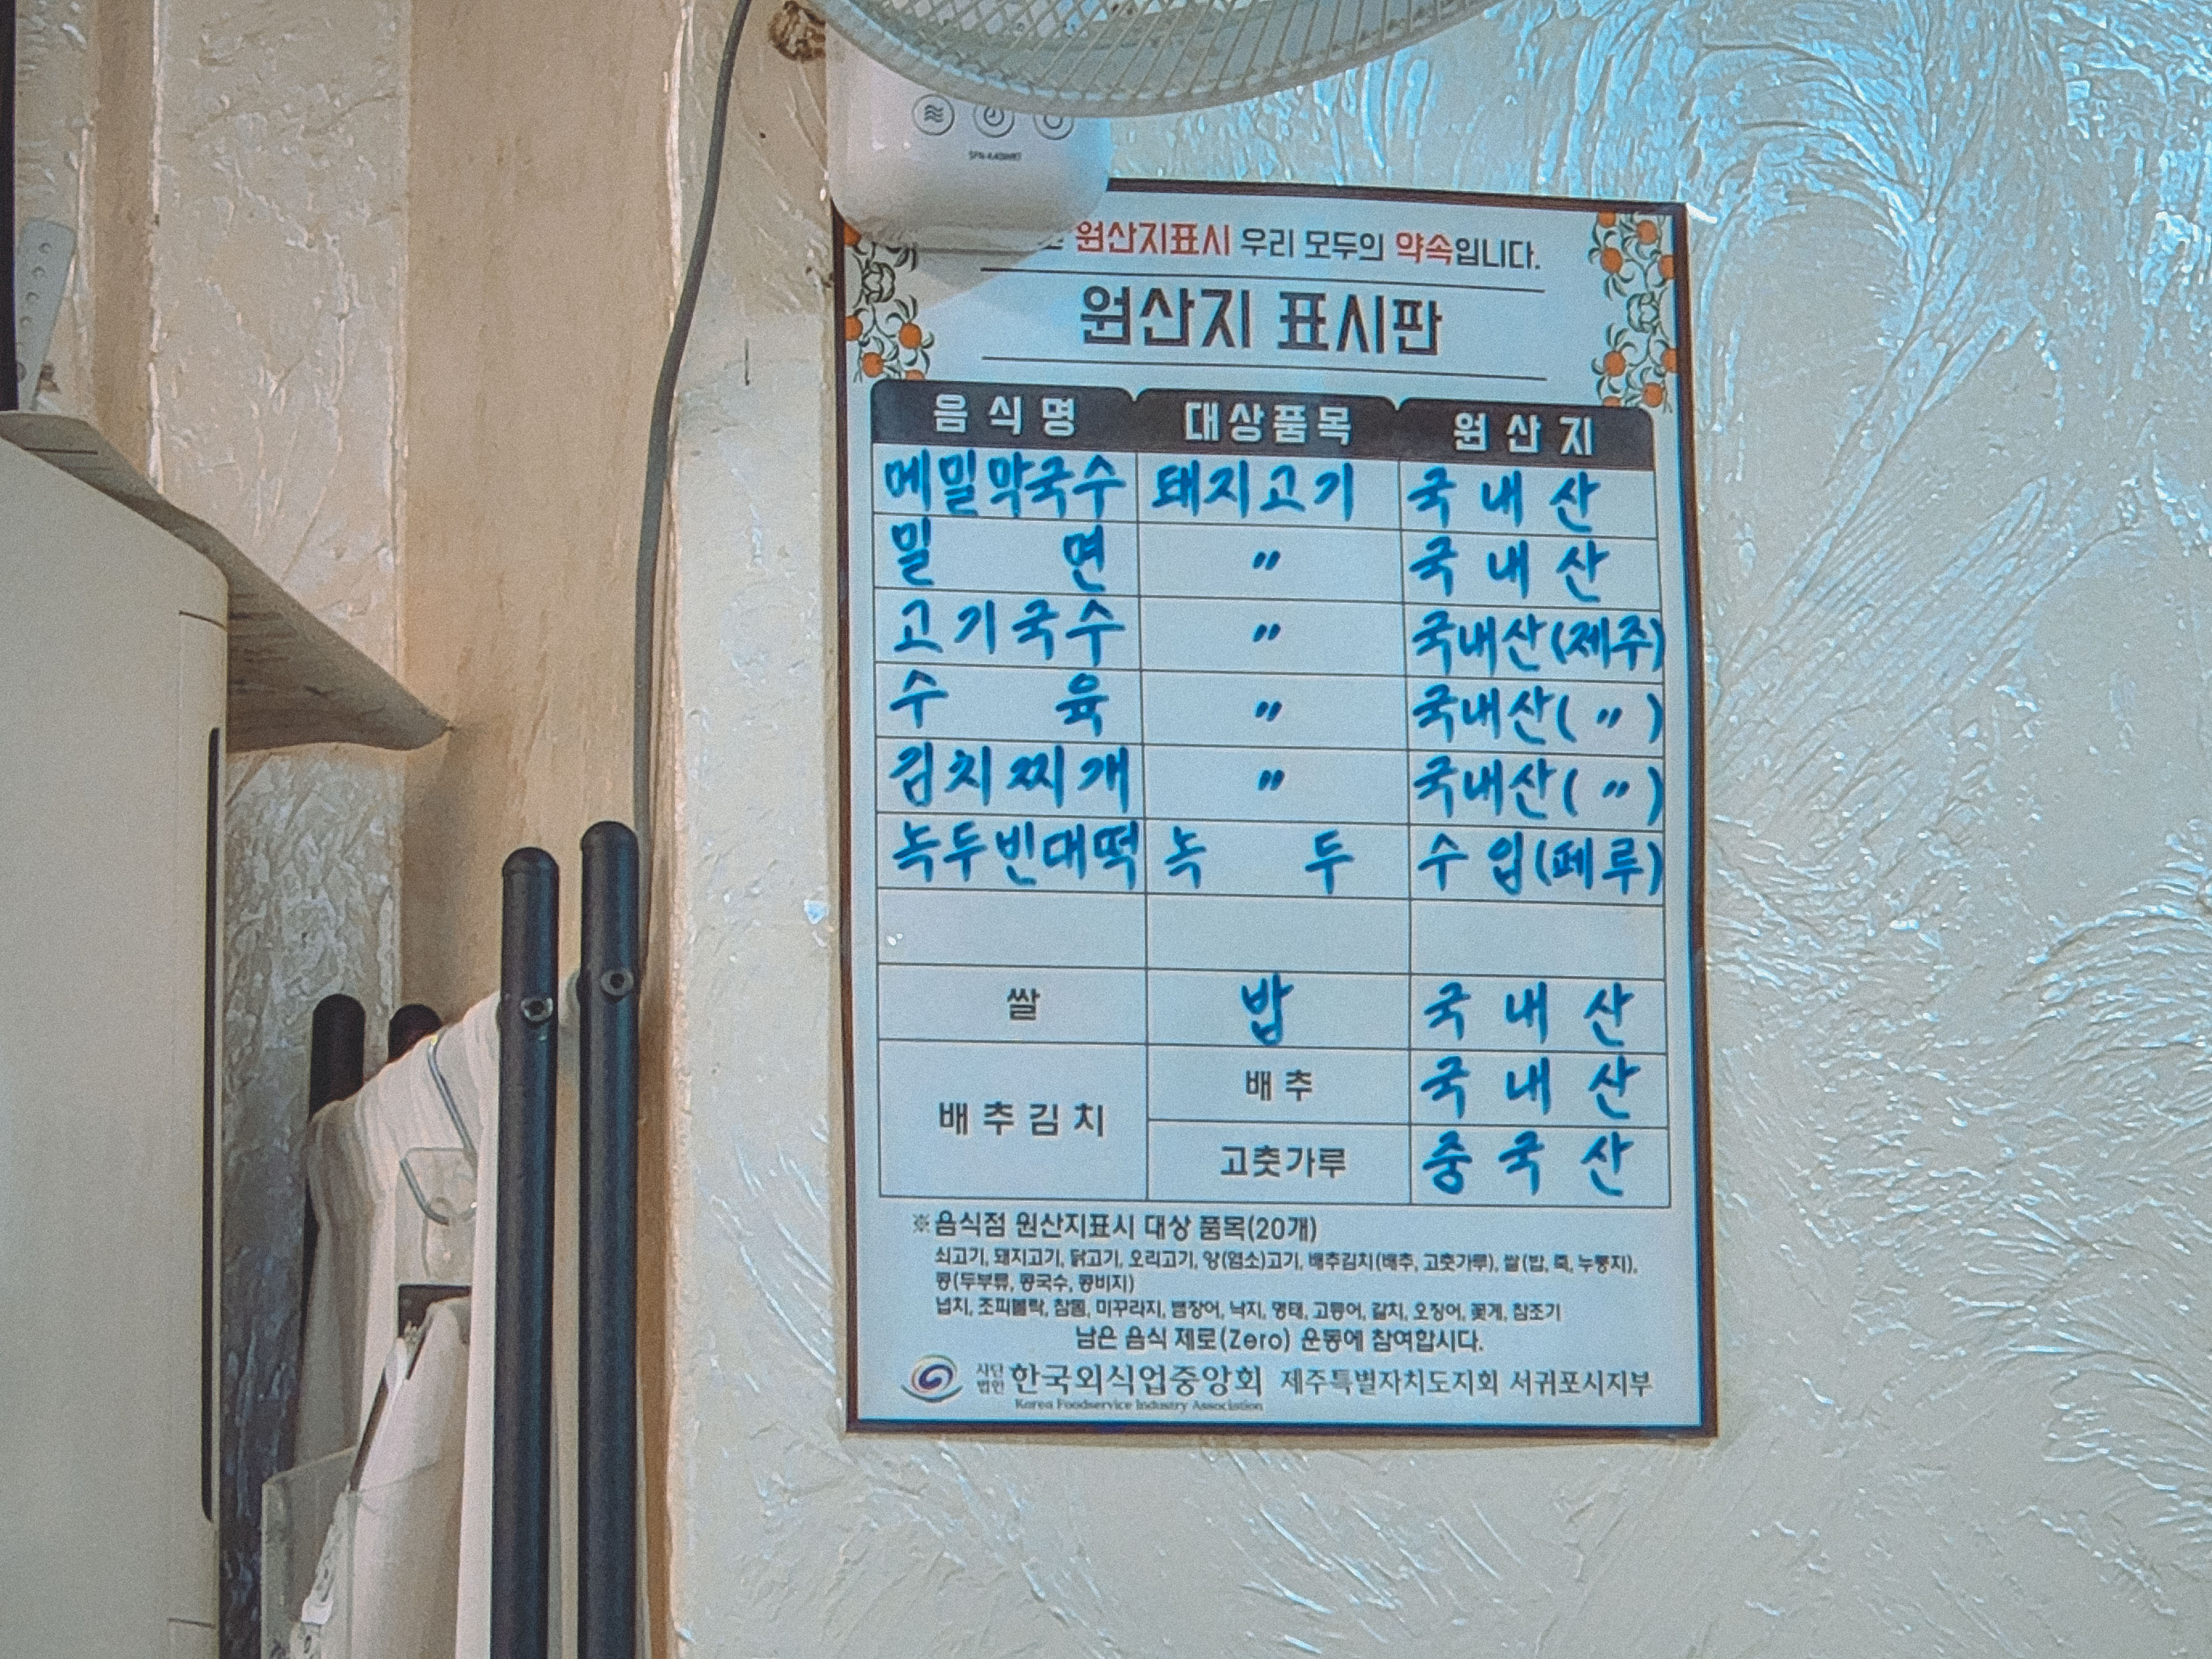 원산지표시 우리 모두의 약속입니다.
원산지 표시판
음식명 대상품목 원산지
메밀막국수 돼지고기 국내산
밀면 〃 국내산
고기국수 〃 국내산(제주)
수육 〃 국내산(〃)
김치찌개 〃 국내산(〃)
녹두빈대떡 녹두 수입(페루)
쌀 밥 국내산
배추김치 배추 국내산
고춧가루 중국산
※음식점 원산지표시 대상 품목(20개)
쇠고기, 돼지고기, 닭고기, 오리고기, 양(염소)고기, 배추김치(배추, 고춧가루), 쌀(밥, 죽, 누룽지),
콩(두부류, 콩국수, 콩비지)
넙치, 조피볼락, 참돔, 미꾸라지, 뱀장어, 낙지, 명태, 고등어, 갈치, 오징어, 꽃게, 참조기
남은 음식 제로(Zero) 운동에 참여합시다.
사단법인 한국외식업중앙회 제주특별자치도지회 서귀포시지부
Korea Foodservice Industry Association